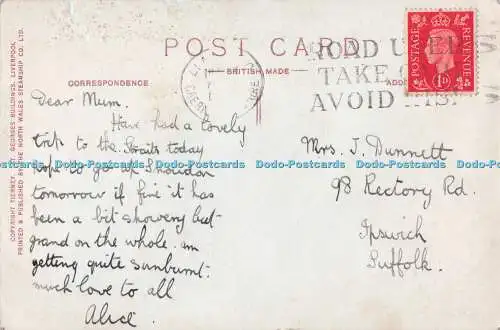 POST CARD
BRITISH MADE
CORRESPONDENCE
ROAD USERS
TAKE
AVOID
POSTAGE
REVENUE
1D
Dear Mum.
Have had a lovely
trip to the Straits today
hope to go up Snowdon
tomorrow if fine it has
been a bit showery but
grand on the whole. am
getting quite sunburnt.
much love to all
Alice.
Mrs. J. Dunnett
98 Rectory Rd.
Ipswich
Suffolk.
COPYRIGHT TIERNEY, ST. GEORGES BUILDINGS, LIVERPOOL
PRINTED & PUBLISHED BY THE NORTH WALES STEAMSHIP CO. LTD.
Dodo-Postcards Dodo-Postcards Dodo-Postcards Dodo-Postcards Dodo-Postcards Dodo-Postcards